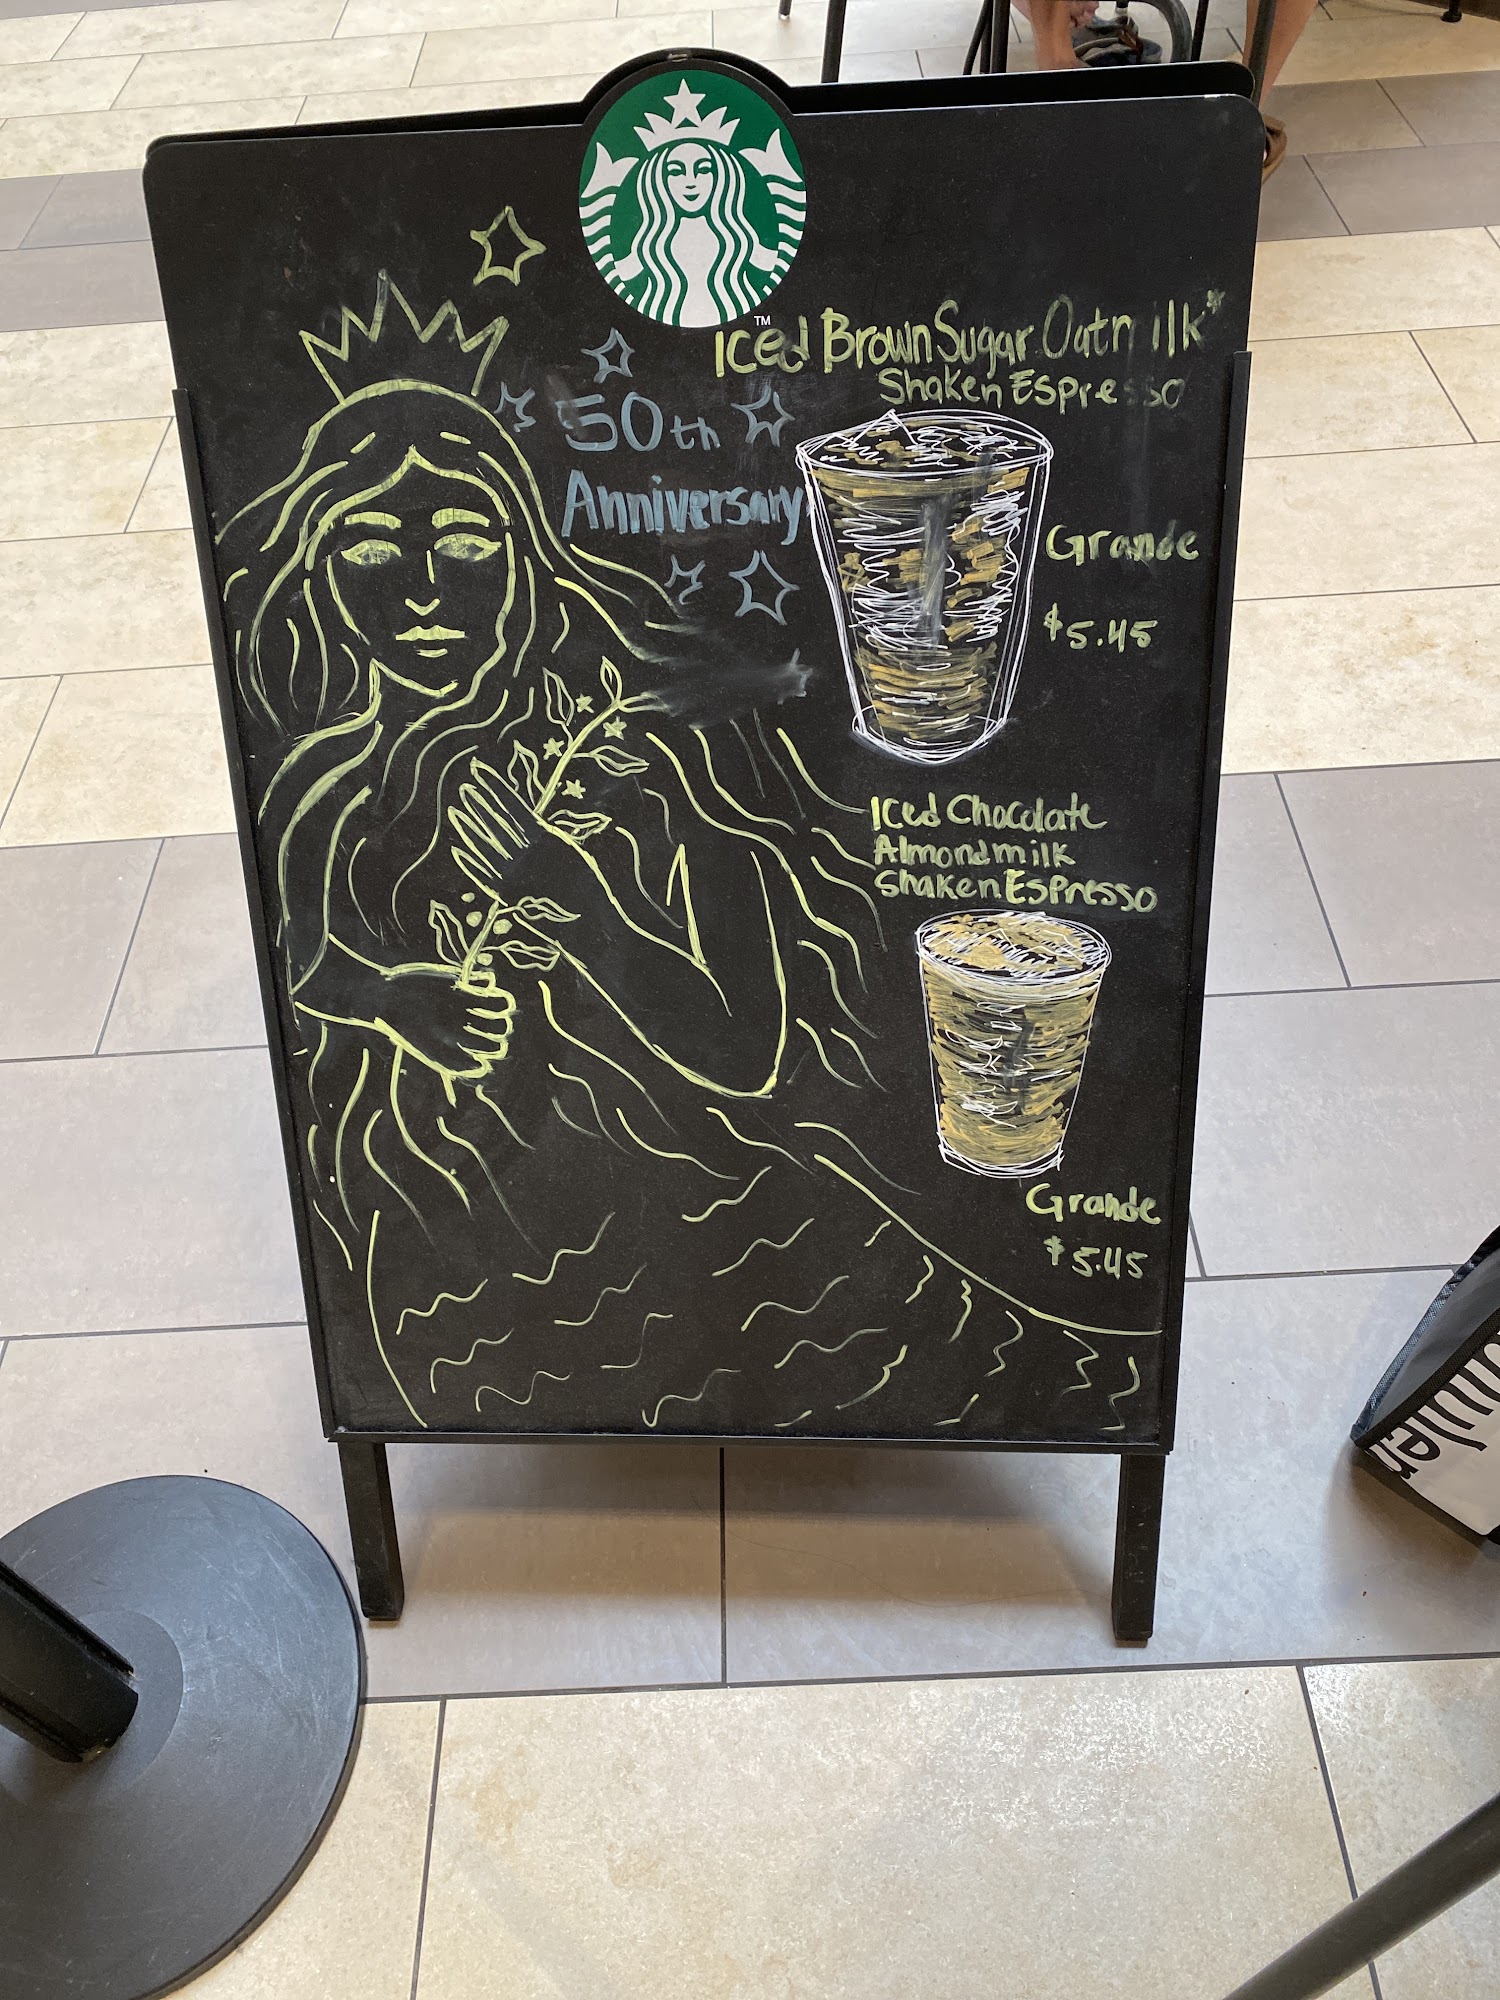 TM
50th
Anniversary
Iced Brown Sugar Oatmilk*
Shaken Espresso
Grande
$5.45
Iced Chocolate
Almondmilk
Shaken Espresso
Grande
$5.45